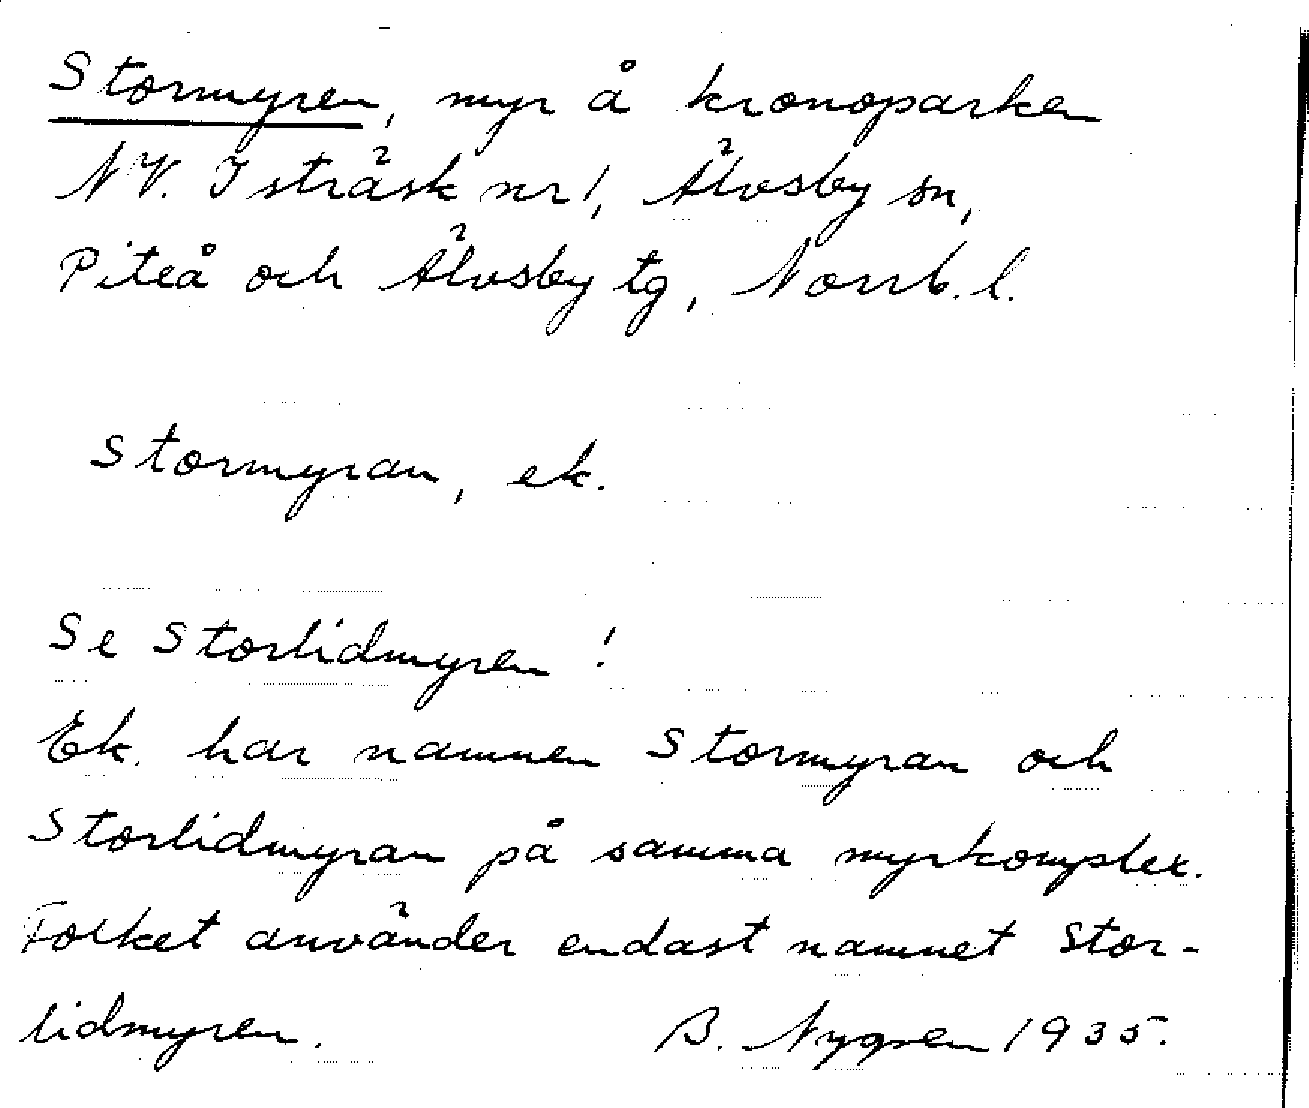 Stormyren, myr å kronoparken
NV. Isträsk nr 1, Älvsby sn,
Piteå och Älvsby tg, Norrb. l.
Stormyran, ek.
Se Storlidmyren!
Ek. har namnen Stormyran och
Storlidmyran på samma myrkomplex.
Folket använder endast namnet Stor-
lidmyren. B. Nygren 1935.